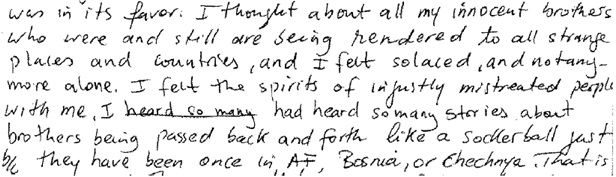 was in its favor. I thought about all my innocent brothers
who were and still are being rendered to all strange
places and countries, and I felt solaced, and not any-
more alone. I felt the spirits of injustly mistreated people
with me, I heard so many had heard so many stories about
brothers being passed back and forth like a sockerball just
b/c they have been once in AF, Bosnia, or Chechnya. That is